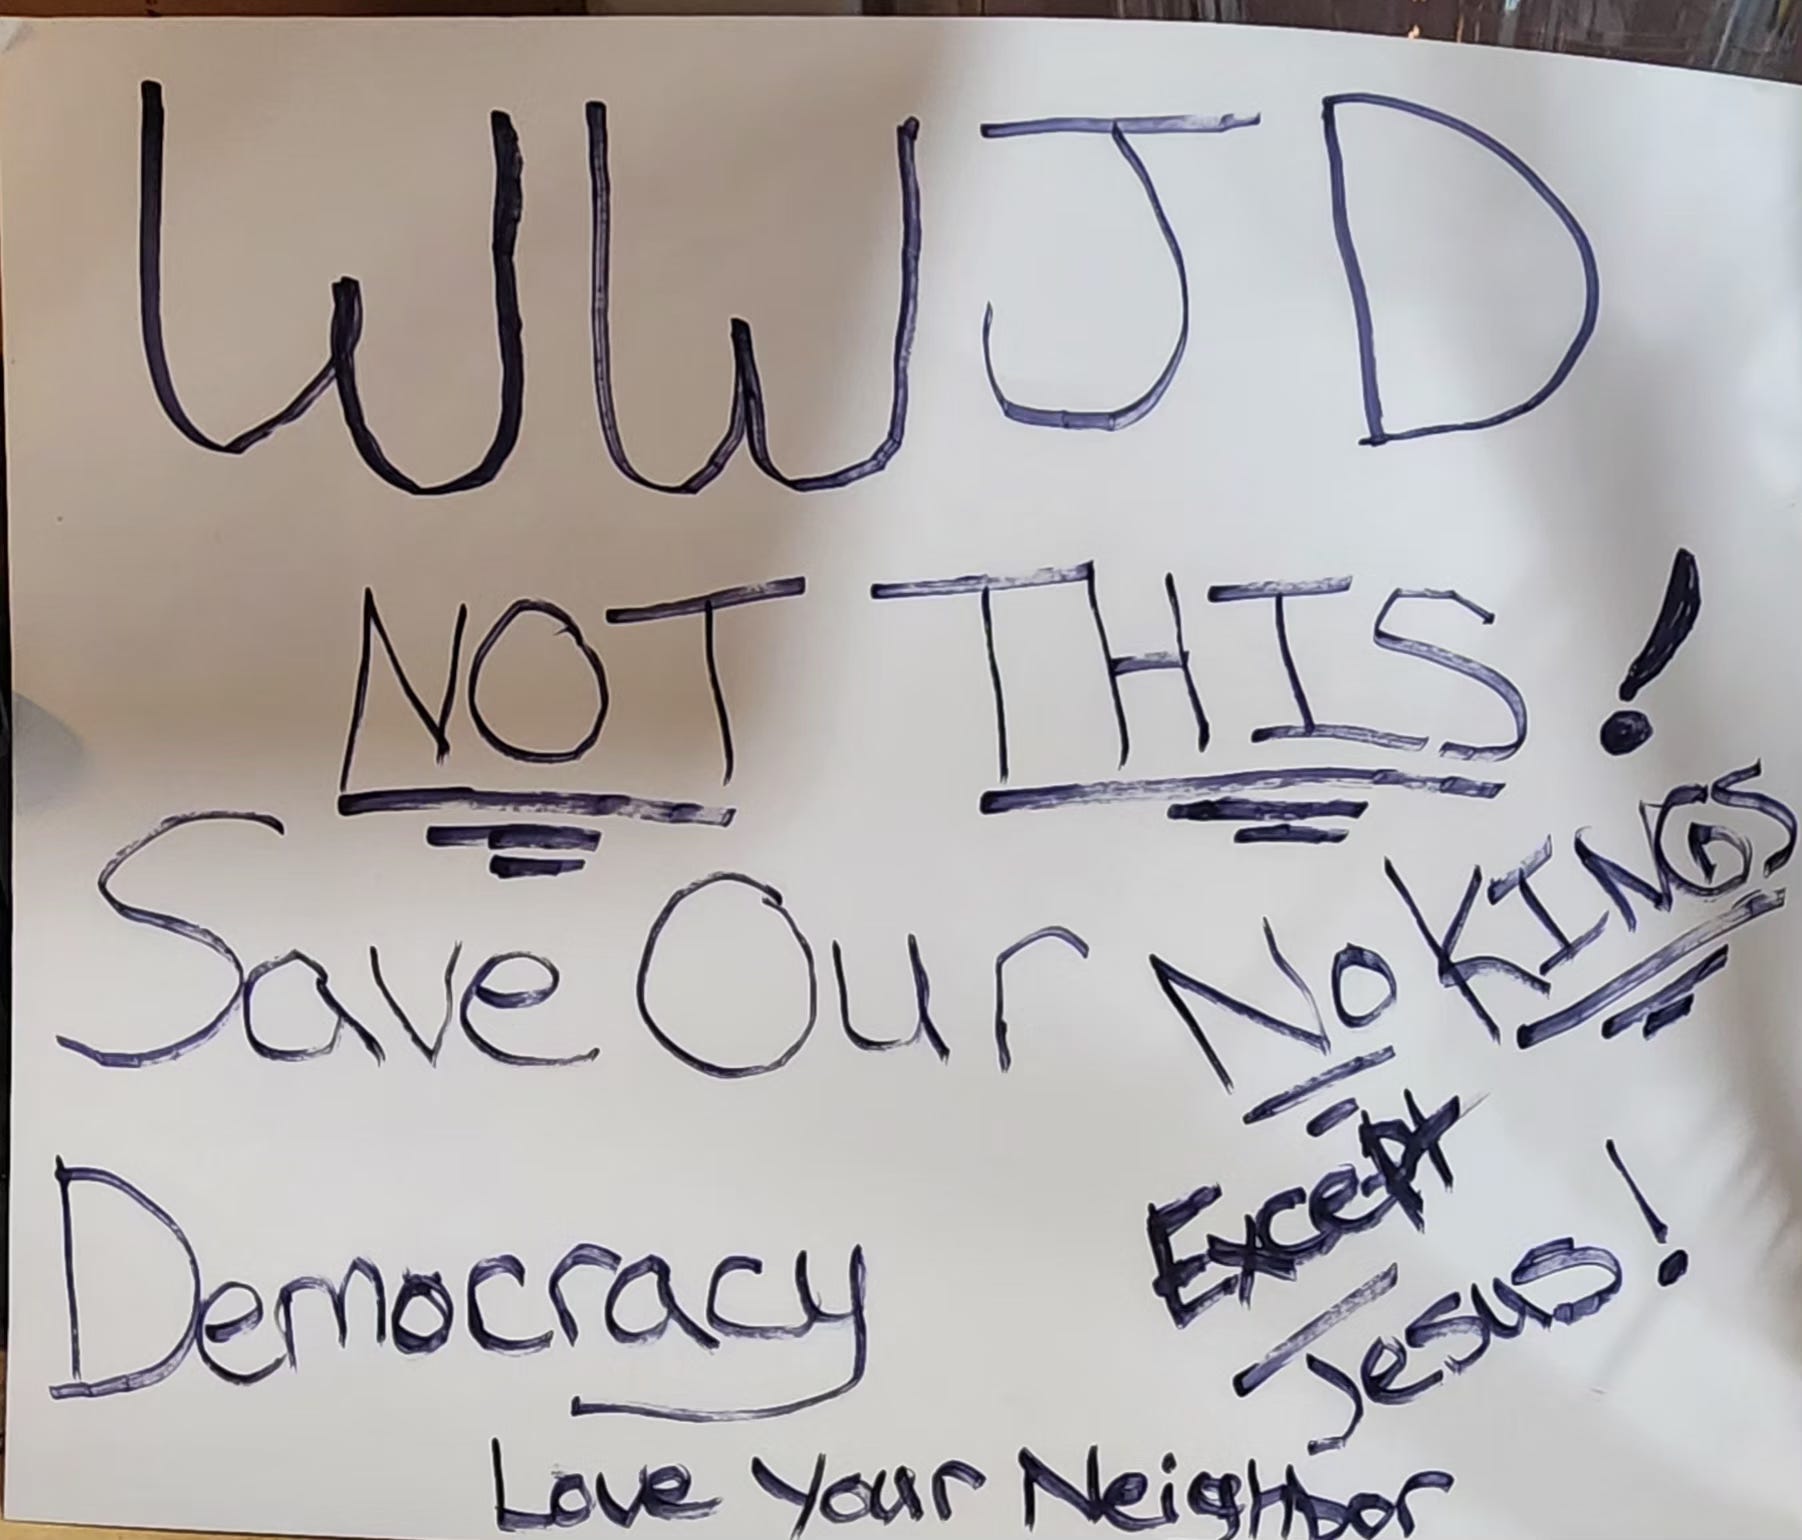 WWJD
NOT THIS!
Save Our
Democracy
No KINGS
Except
Jesus!
Love Your Neighbor